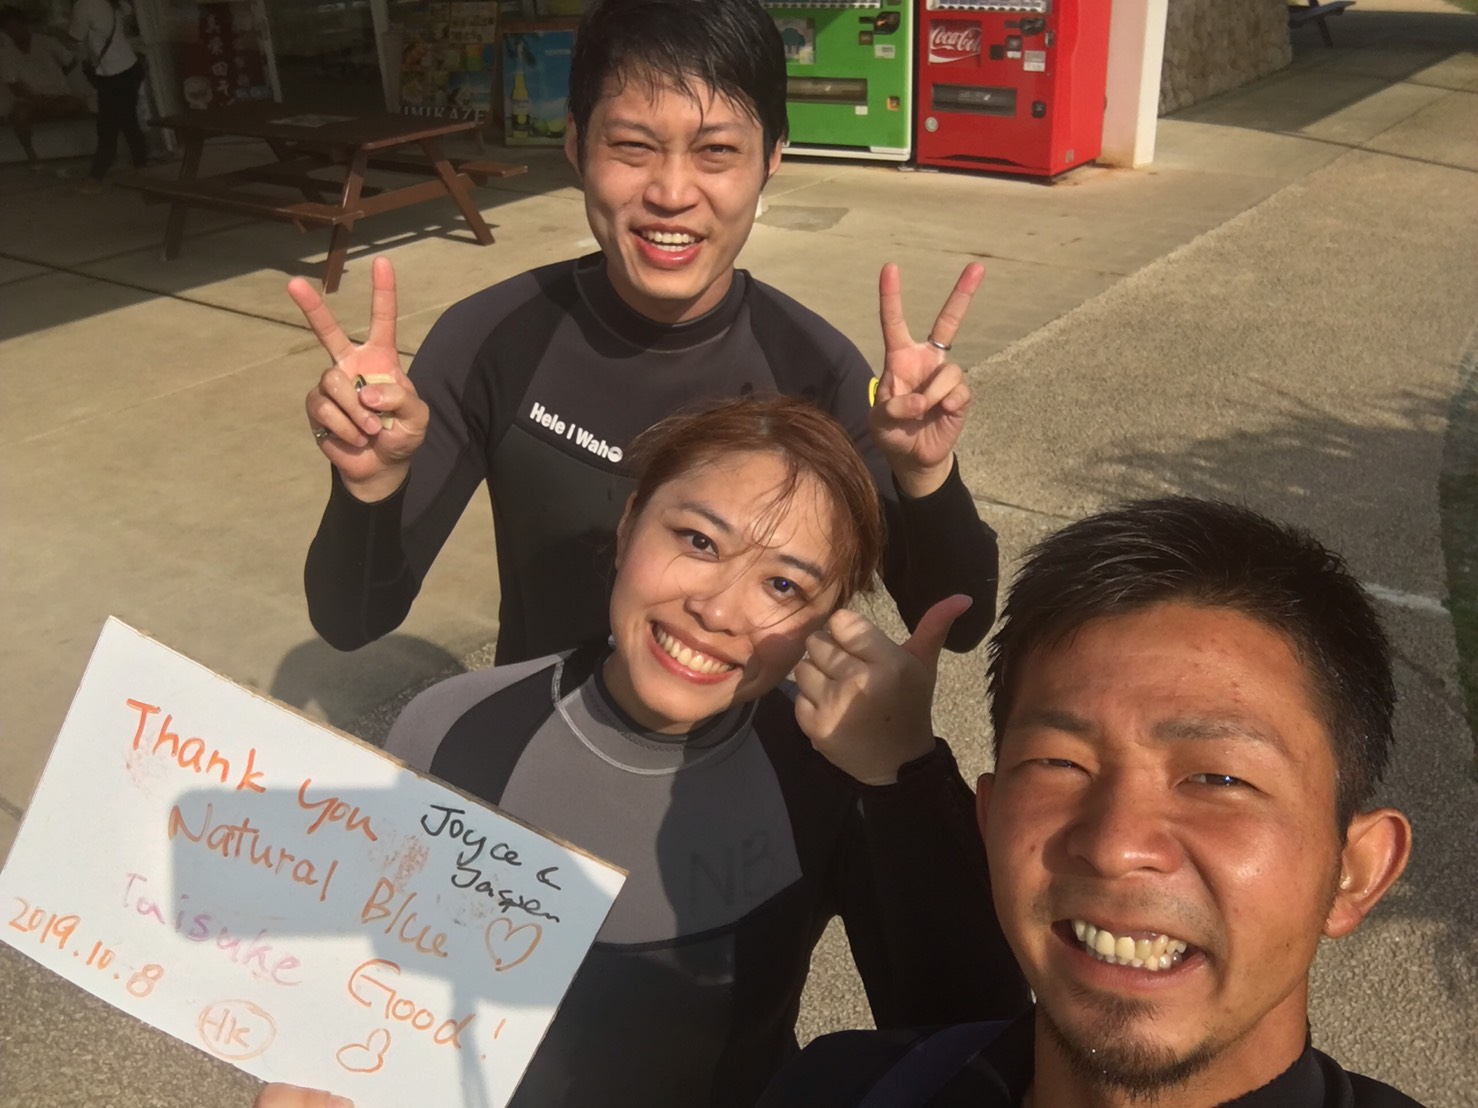 Coca-Cola
KAMIKAZE
Hele I Waho
NB
Thank you Joyce & Jasper
Natural Blue ♡
Taisuke Good!
2019.10.8 HK